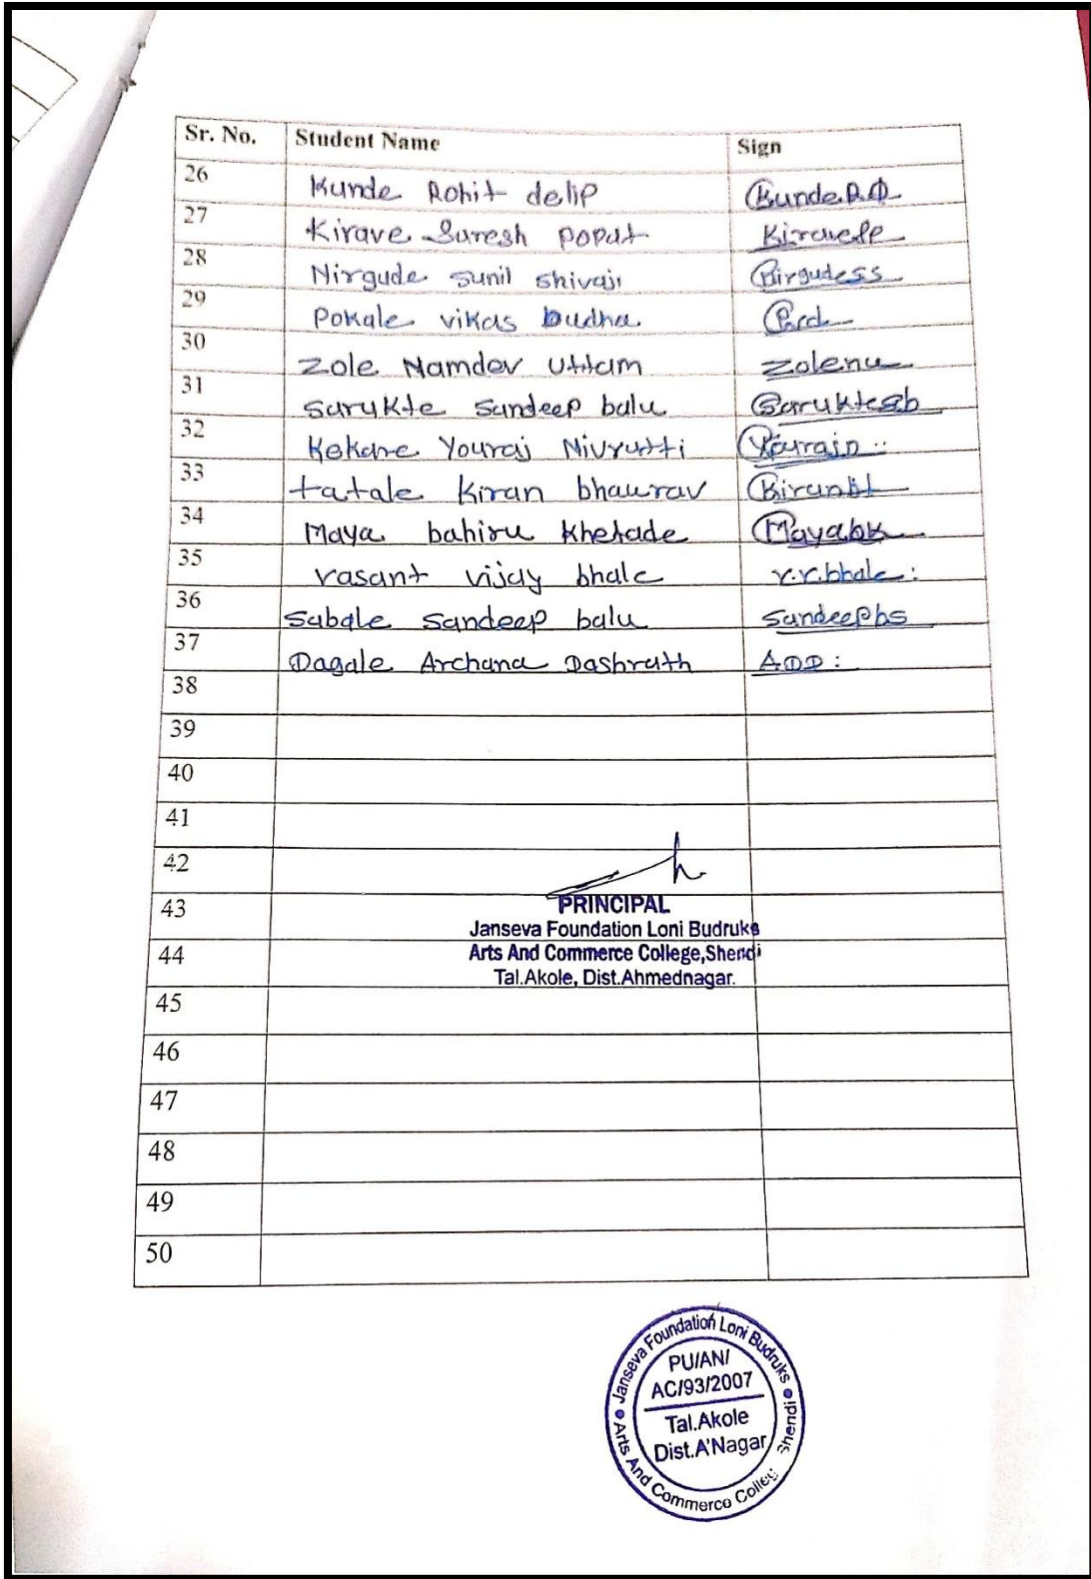 Sr. No. Student Name Sign
26 Kunde Rohit delip Kunde.R.D
27 Kirave Suresh popat Kiravesp
28 Nirgude sunil shivaji Nirgudess
29 Pokale vikas budha
30 Zole Namdev Uttam zolenu
31 sarukte sandeep balu Saruktesb
32 Kekare Youraj Nivrutti Yourajn
33 tatale Kiran bhaurav Kiranbt
34 Maya bahiru Khetade Mayabk
35 vasant vijay bhale v.v.bhale:
36 Sabale Sandeep balu Sandeepbs
37 Dagale Archana Dashrath A.D.D:
38
39
40
41
42
43
44
45
46
47
48
49
50
PRINCIPAL
Janseva Foundation Loni Budruks
Arts And Commerce College,Shendi
Tal.Akole, Dist.Ahmednagar.
Janseva Foundation Loni Budruks
Arts And Commerce College Shendi
PU/AN/
AC/93/2007
Tal.Akole
Dist.A'Nagar